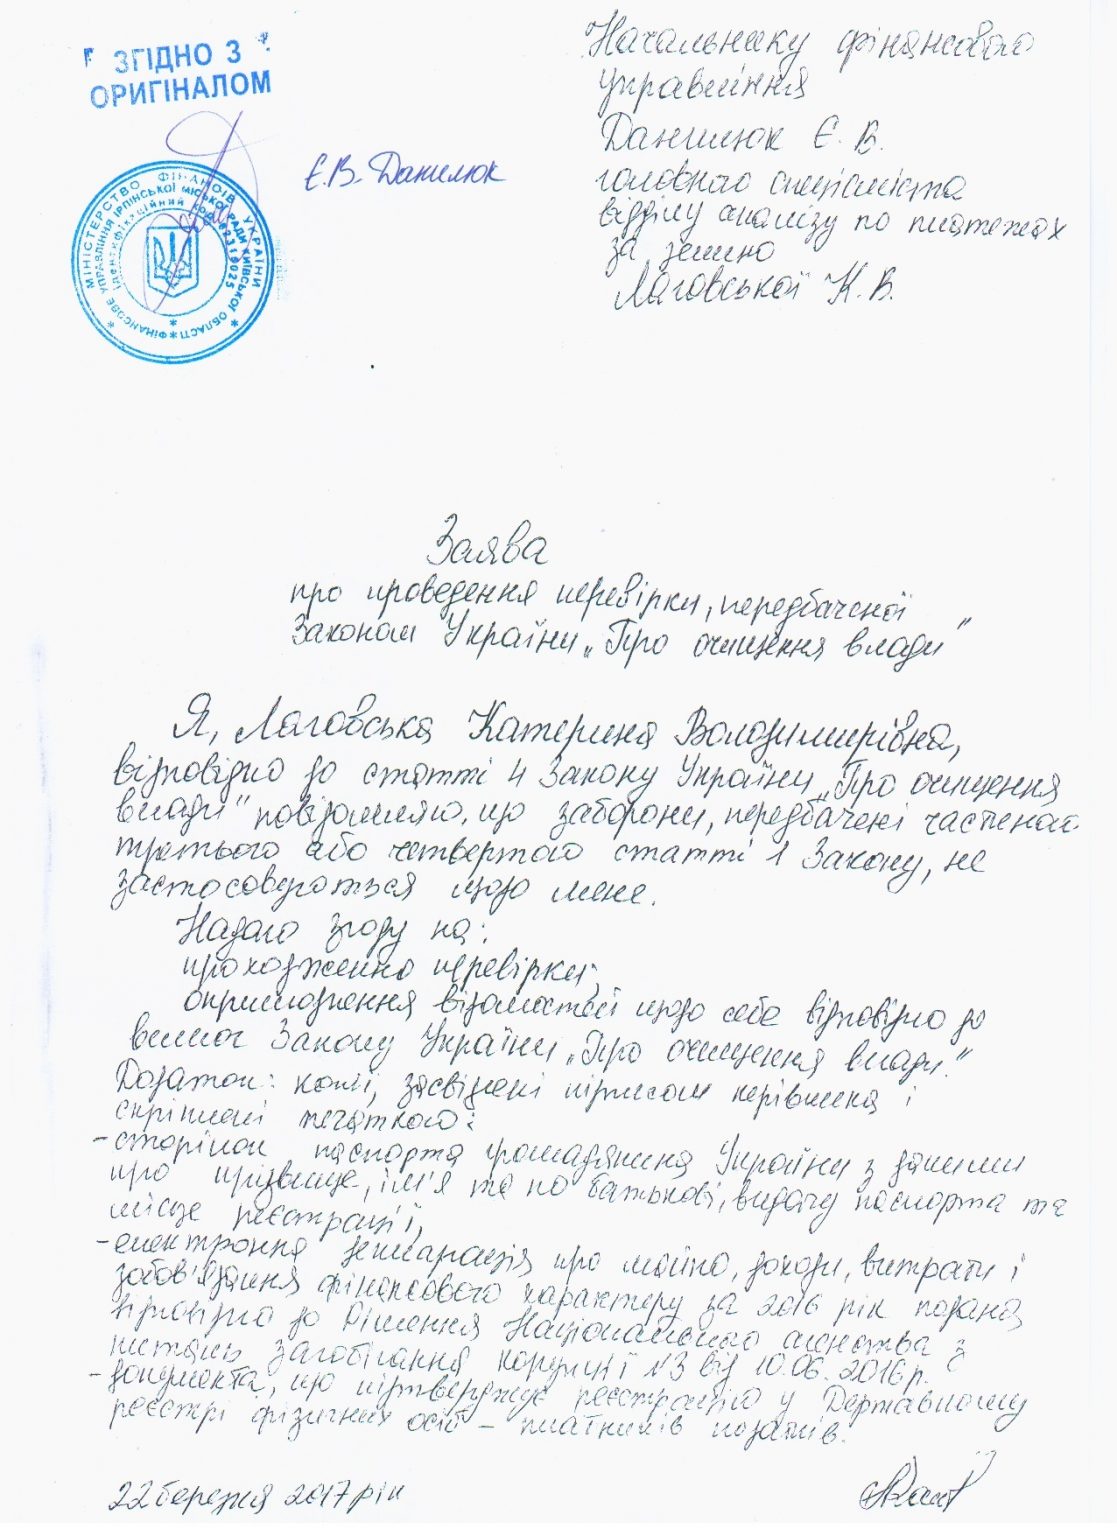 ЗГІДНО З
ОРИГІНАЛОМ
Є.В. Данилюк
МІНІСТЕРСТВО ФІНАНСІВ УКРАЇНИ
ФІНАНСОВЕ УПРАВЛІННЯ ІРПІНСЬКОЇ МІСЬКОЇ РАДИ КИЇВСЬКОЇ ОБЛАСТІ
Ідентифікаційний код 02319025
Начальнику фінансового
управління
Данилюк Є. В.
головного спеціаліста
відділу аналізу по платежах
за землю
Лаговської К. В.
Заява
про проведення перевірки, передбаченої
Законом України „Про очищення влади"
Я, Лаговська Катерина Володимирівна,
відповідно до статті 4 Закону України „Про очищення
влади" повідомляю, що заборони, передбачені частиною
третьою або четвертою статті 1 Закону, не
застосовуються щодо мене.
Надаю згоду на:
проходження перевірки;
оприлюднення відомостей щодо себе відповідно до
вимог Закону України „Про очищення влади."
Додаток: копії, засвідчені підписом керівника і
скріплені печаткою:
- сторінок паспорта громадянина України з даними
про прізвище, ім'я та по батькові, видачу паспорта та
місце реєстрації,
- електронна декларація про майно, доходи, витрати і
зобов'язання фінансового характеру за 2016 рік подана
відповідно до Рішення Національного агентства з
питань запобігання корупції №3 від 10.06.2016р.
- документа, що підтверджує реєстрацію у Державному
реєстрі фізичних осіб – платників податків.
22 березня 2017 рік